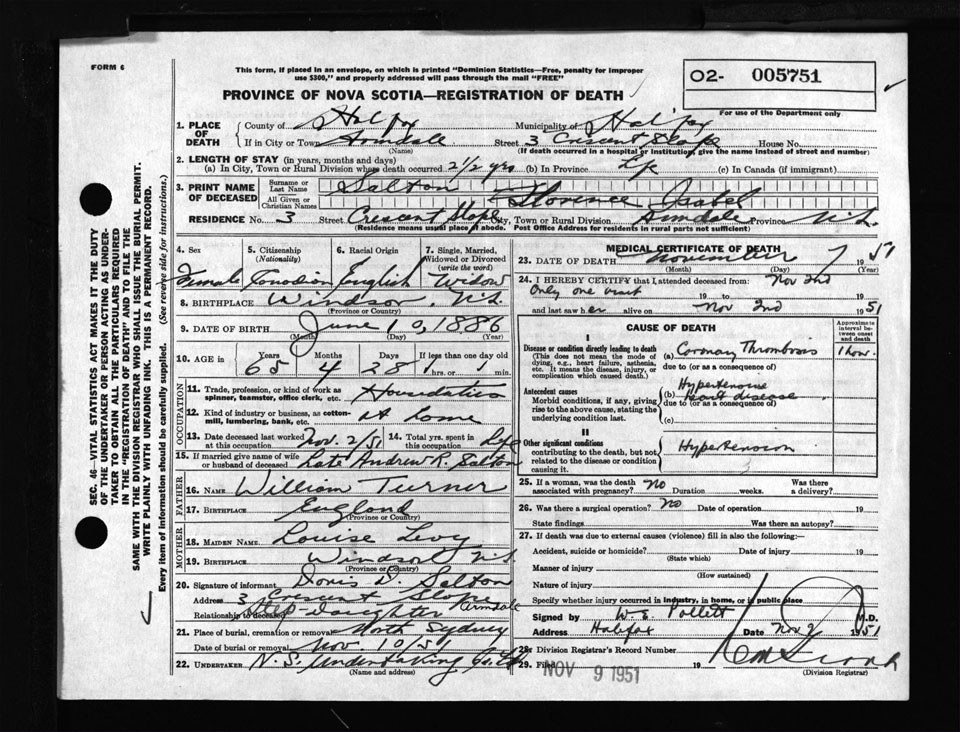 FORM 6
This form, if placed in an envelope, on which is printed "Dominion Statistics—Free, penalty for improper
use $300," and properly addressed will pass through the mail "FREE"
PROVINCE OF NOVA SCOTIA—REGISTRATION OF DEATH
02- 005751
For use of the Department only
1. PLACE OF DEATH
County of Halifax Municipality of Halifax
If in City or Town Armdale Street 3 Crescent Slope House No.
(Name) (If death occurred in a hospital or institution, give the name instead of street and number)
2. LENGTH OF STAY (in years, months and days)
(a) In City, Town or Rural Division where death occurred 2 1/2 yrs (b) In Province Life (c) In Canada (if immigrant)
3. PRINT NAME OF DECEASED
Surname or Last Name Salton
All Given or Christian Names Florence Isabel
RESIDENCE No. 3 Street Crescent Slope City, Town or Rural Division Armdale Province N.S.
(Residence means usual place of abode. Post Office Address for residents in rural parts not sufficient)
4. Sex Female
5. Citizenship (Nationality) Canadian
6. Racial Origin English
7. Single, Married, Widowed or Divorced (write the word) Widow
8. BIRTHPLACE Windsor, N.S.
(Province or Country)
9. DATE OF BIRTH June 10, 1886
(Month) (Day) (Year)
10. AGE in Years 65 Months 4 Days 28 If less than one day old hrs. or min.
OCCUPATION
11. Trade, profession, or kind of work as spinner, teamster, office clerk, etc.
12. Kind of industry or business, as cotton-mill, lumbering, bank, etc. At home
13. Date deceased last worked at this occupation Nov. 2/51
14. Total yrs. spent in this occupation Life
15. If married give name of wife or husband of deceased Late Andrew R. Salton
FATHER
16. NAME William Turner
17. BIRTHPLACE England
(Province or Country)
MOTHER
18. MAIDEN NAME Louise Levy
19. BIRTHPLACE Windsor N.S.
(Province or Country)
20. Signature of informant Doris D. Salton
Address 3 Crescent Slope Armdale
Relationship to deceased Step-daughter
21. Place of burial, cremation or removal North Sydney
Date of burial or removal Nov. 10/51
22. UNDERTAKER N.S. Undertaking Co. Ltd
(Name and address)
MEDICAL CERTIFICATE OF DEATH
23. DATE OF DEATH November 7 1951
(Month) (Day) (Year)
24. I HEREBY CERTIFY that I attended deceased from: Nov 2nd
Only one visit 19 to 19
and last saw her alive on Nov 2nd 1951
CAUSE OF DEATH
Approximate interval between onset and death
I
Disease or condition directly leading to death
(This does not mean the mode of dying, e.g., heart failure, asthenia, etc. It means the disease, injury, or complication which caused death.)
(a) Coronary Thrombosis 1 hour.
due to (or as a consequence of)
Antecedent causes
Morbid conditions, if any, giving rise to the above cause, stating the underlying condition last.
(b) Hypertensive heart disease
due to (or as a consequence of)
(c)
II
Other significant conditions
contributing to the death, but not related to the disease or condition causing it.
Hypertension
25. If a woman, was the death associated with pregnancy? No Duration weeks. Was there a delivery?
26. Was there a surgical operation? No Date of operation 19
State findings Was there an autopsy?
27. If death was due to external causes (violence) fill in also the following:—
Accident, suicide or homicide? Date of injury 19
(State which)
Manner of injury
(How sustained)
Nature of injury
Specify whether injury occurred in industry, in home, or in public place
Signed by W E Pollett M.D.
Address Halifax Date Nov 9 1951
28. Division Registrar's Record Number
29. Filed NOV 9 1951 19
(Division Registrar)
SEC. 46—VITAL STATISTICS ACT MAKES IT THE DUTY
OF THE UNDERTAKER OR PERSON ACTING AS UNDER-
TAKER TO OBTAIN ALL THE PARTICULARS REQUIRED
IN THE "REGISTRATION OF DEATH" AND TO FILE THE
SAME WITH THE DIVISION REGISTRAR WHO SHALL ISSUE THE BURIAL PERMIT.
WRITE PLAINLY WITH UNFADING INK. THIS IS A PERMANENT RECORD.
Every item of information should be carefully supplied. (See reverse side for instructions.)